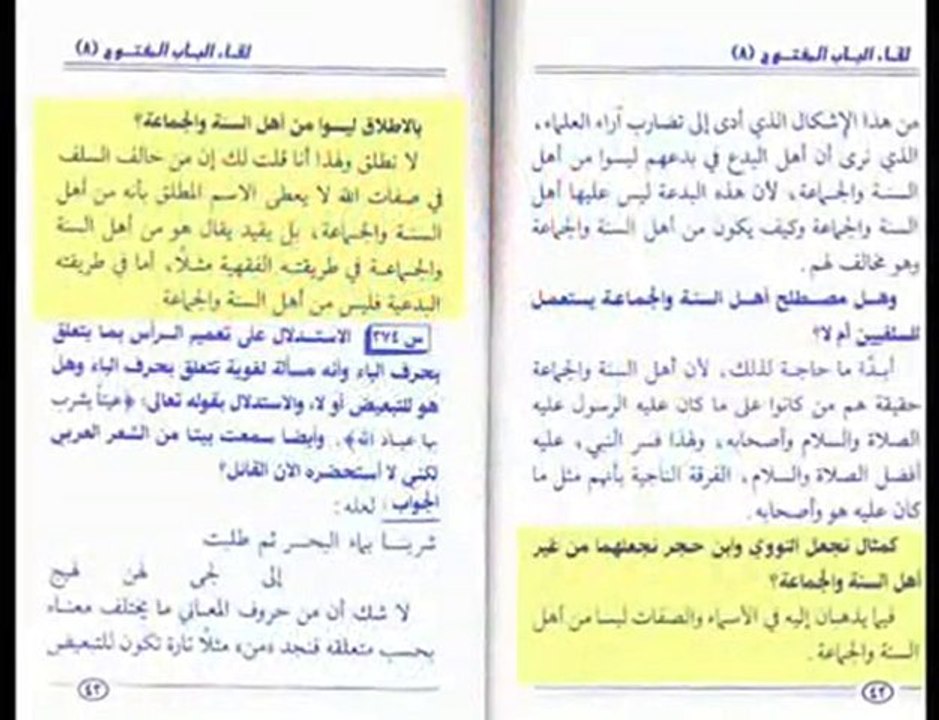 لقاء الباب المفتوح (٨)
من هذا الإشكال الذي أدى إلى تضارب آراء العلماء،
الذي نرى أن أهل البدع في بدعهم ليسوا من أهل
السنة والجماعة، لأن هذه البدعة ليس عليها أهل
السنة والجماعة وكيف يكون من أهل السنة والجماعة
وهو مخالف لهم.
وهل مصطلح أهل السنة والجماعة يستعمل
للسلفيين أم لا؟
أبدًا ما حاجة لذلك، لأن أهل السنة والجماعة
حقيقة هم من كانوا على ما كان عليه الرسول عليه
الصلاة والسلام وأصحابه، ولهذا فسر النبي، عليه
أفضل الصلاة والسلام، الفرقة الناجية بأنهم مثل ما
كان عليه هو وأصحابه.
كمثال نجعل النووي وابن حجر نجعلهما من غير
أهل السنة والجماعة؟
فيما يذهبان إليه في الأسماء والصفات ليسا من أهل
السنة والجماعة.
٤٢
لقاء الباب المفتوح (٨)
بالاطلاق ليسوا من أهل السنة والجماعة؟
لا نطلق ولهذا أنا قلت لك إن من خالف السلف
في صفات الله لا يعطى الاسم المطلق بأنه من أهل
السنة والجماعة، بل يقيد يقال هو من أهل السنة
والجماعة في طريقته الفقهية مثلًا، أما في طريقته
البدعية فليس من أهل السنة والجماعة
س ٢٧٤ الاستدلال على تعميم الرأس بما يتعلق
بحرف الباء وأنه مسألة لغوية تتعلق بحرف الباء وهل
هو للتبعيض أو لا، والاستدلال بقوله تعالى: ﴿عينًا يشرب
بها عباد الله﴾. وأيضا سمعت بيتا من الشعر العربي
لكني لا أستحضره الآن القائل؟
الجواب: لعله:
شربنا بماء البحر ثم طلبت
إلى لجى لهن لهيج
لا شك أن من حروف المعاني ما يختلف معناه
بحسب متعلقه فنجد «من» مثلًا تارة تكون للتبعيض
٤٣